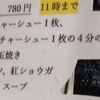 780円 11時まで
チャーシュー1枚、
チャーシュー1枚の4分の
玉焼き
、紅ショウガ
スープ